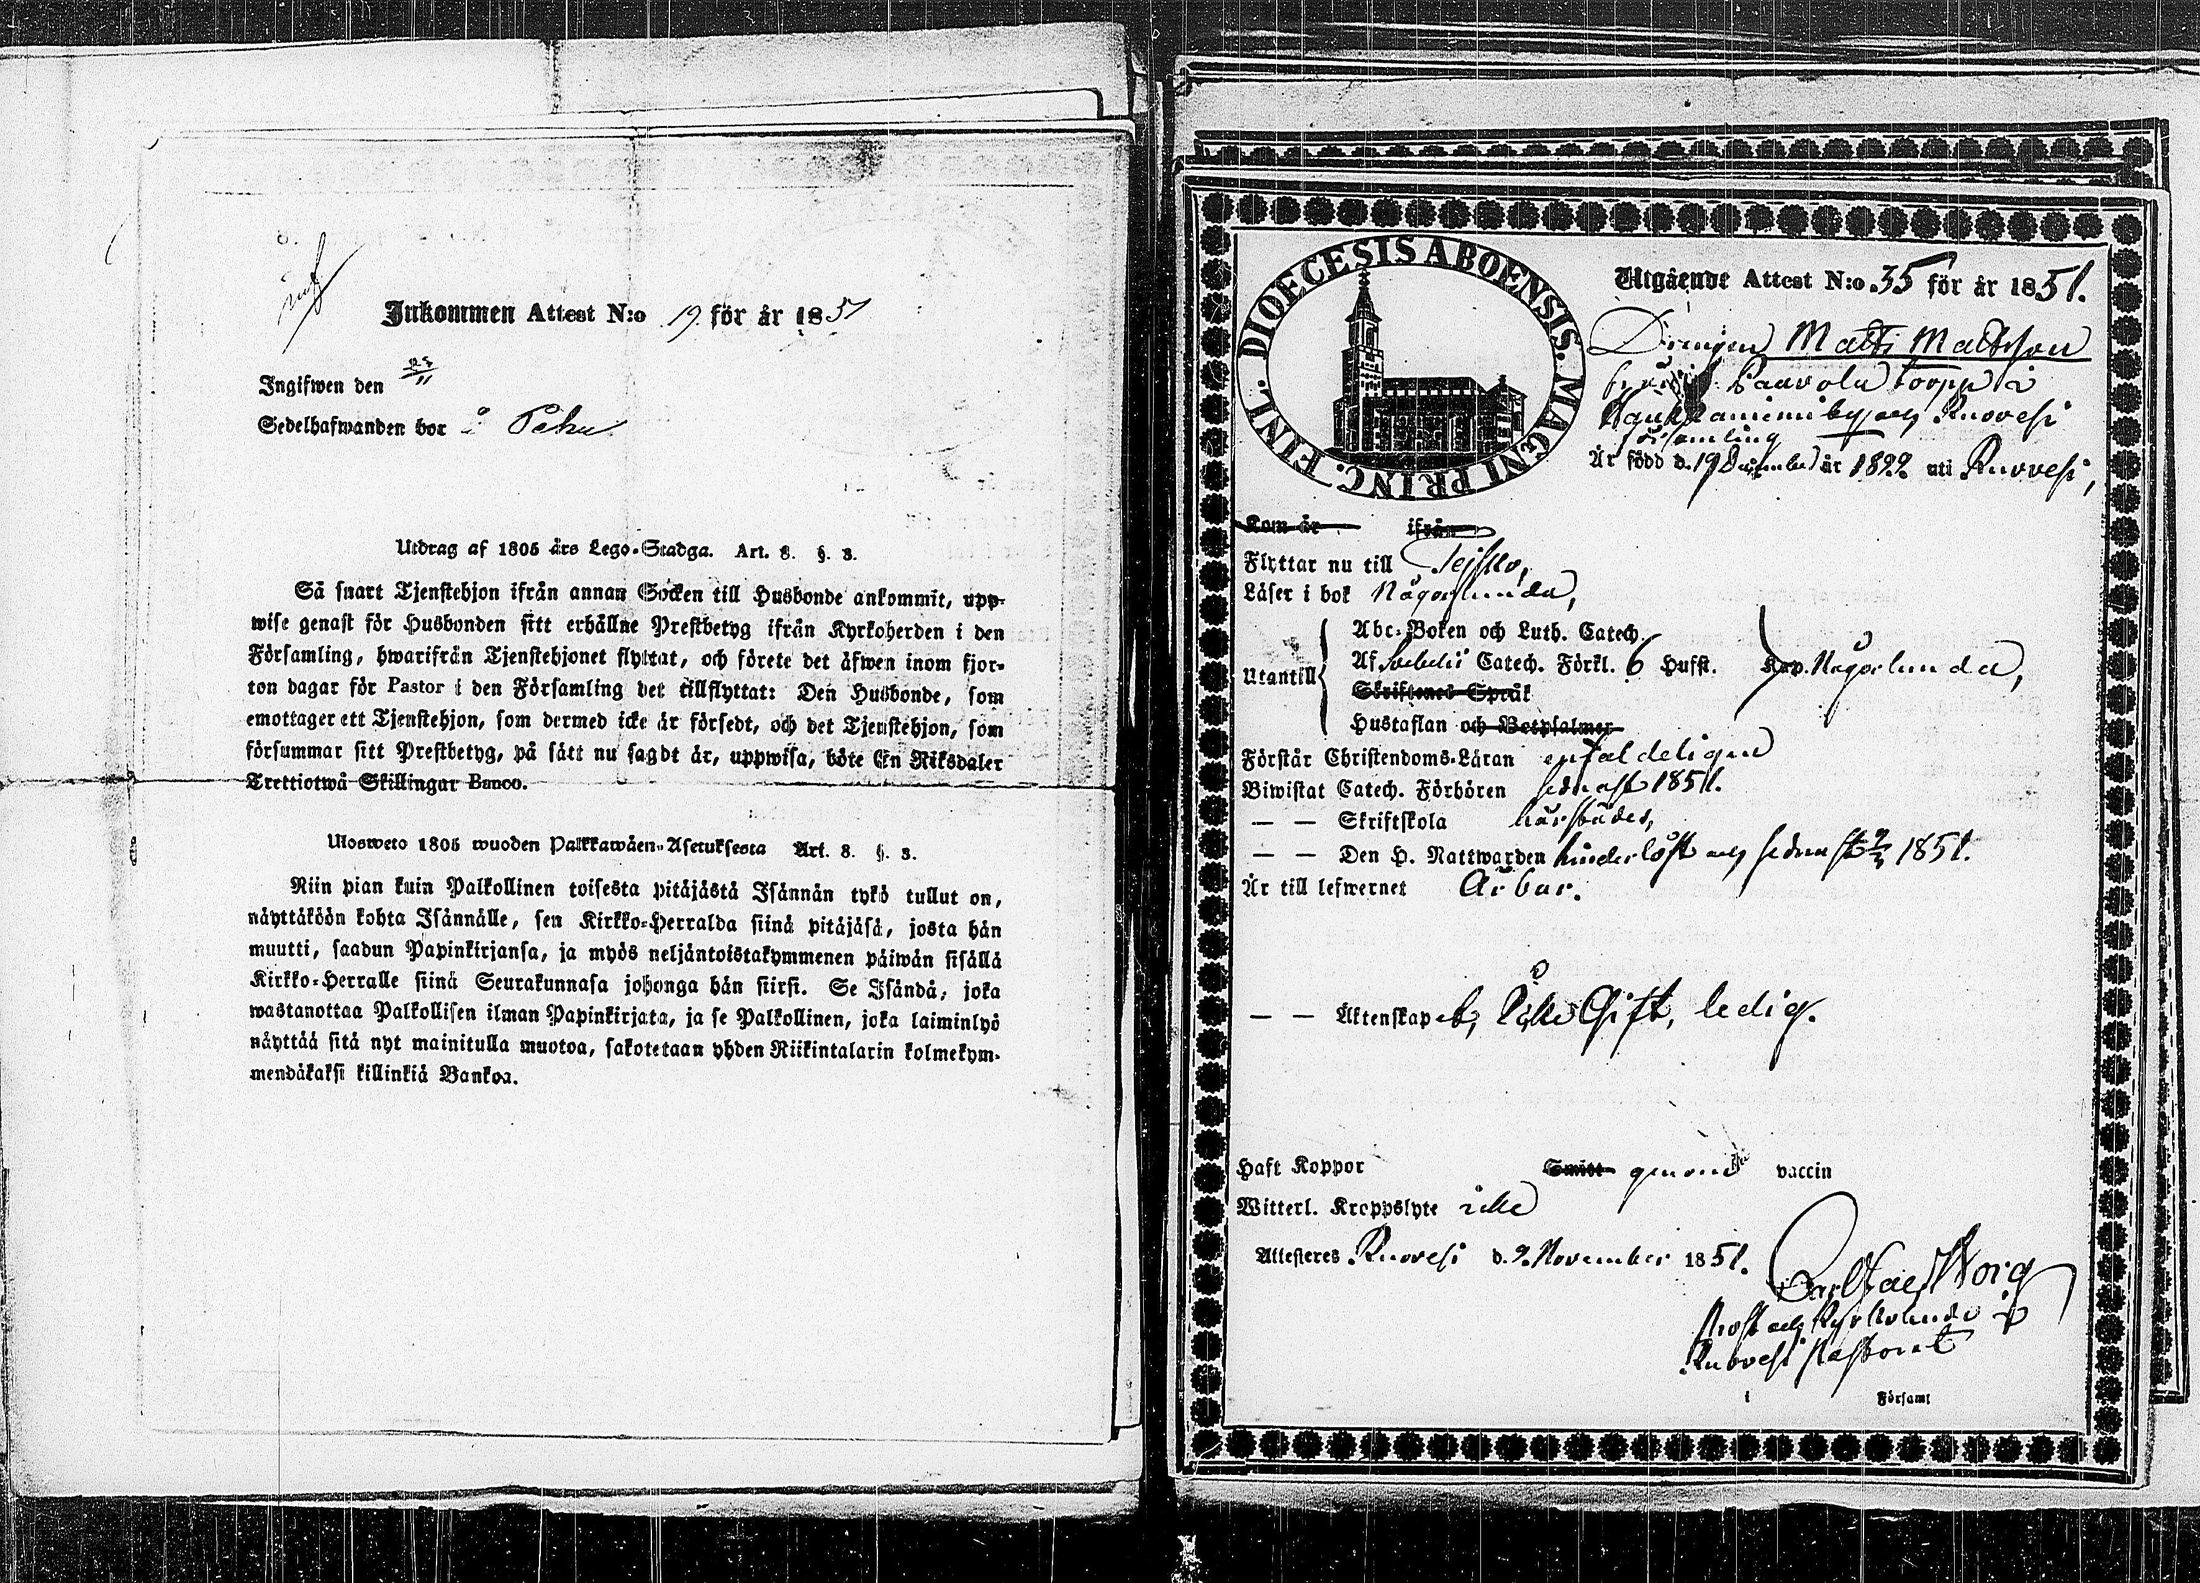 Inkommen Attest N:o 19 för år 1851
Ingifwen den 23/11
Sedelhafwanden bor å Pehu
Utdrag af 1805 års Lego-Stadga. Art. 8. §. 3.
Så snart Tjenstehjon ifrån annan Socken till Husbonde ankommit, upp-
wise genast för Husbonden sitt erhållne Prestbetyg ifrån Kyrkoherden i den
Församling, hwarifrån Tjenstehjonet flyttat, och förete det äfwen inom fjor-
ton dagar för Pastor i den Församling det tillflyttat: Den Husbonde, som
emottager ett Tjenstehjon, som dermed icke är försedt, och det Tjenstehjon, som
försummar sitt Prestbetyg, på sätt nu sagdt är, uppwisa, böte En Riksdaler
Trettiotwå Skillingar Banco.
Ulosweto 1805 wuoden Palkkawäen-Asetuksesta Art. 8. §. 3.
Niin pian kuin Palkollinen toisesta pitäjästä Isännän tykö tullut on,
näyttäköön kohta Isännälle, sen Kirkko-Herralda siinä pitäjäsä, josta hän
muutti, saadun Papinkirjansa, ja myös neljäntoistakymmenen päiwän sisällä
Kirkko-Herralle siinä Seurakunnasa johonga hän siirsi. Se Isändä, joka
wastanottaa Palkollisen ilman Papinkirjata, ja se Palkollinen, joka laiminlyö
näyttää sitä nyt mainitulla muotoa, sakotetaan yhden Riikintalarin kolmekym-
mendäkaksi killinkiä Bankoa.
DIOECESIS ABOENSIS. MAGNI PRINC. FINL.
Utgående Attest N:o 35 för år 1851.
Drengen Matts Mattsson
från Paavola torpp i
by och Ruovesi
församling
Är född d. 19 December år 1822 uti Ruovesi,
Kom år ifrån
Flyttar nu till Teisko,
Läser i bok Någorlunda,
Utantill
Abc-Boken och Luth. Catech.
Af Svebelii Catech. Förkl. 6 Hufst. Någorlunda,
Skriftenes Språk
Hustaflan och Botpsalmer
Förstår Christendoms-Läran enfaldeligen
Biwistat Catech. Förhören sednast 1851.
— — Skriftskola härstädes,
— — Den H. Nattwarden hinderlöst och sednast 1851.
Är till lefwernet Ärbar.
— — Äktenskapet, Icke Gift, ledig.
Haft Koppor Smitt- genom vaccin
Witterl. Kroppslyte icke
Attesteres Ruovesi d. 9. November 1851.
Prost och Kyrkoherde i
Ruovesi Pastorat
i Församl